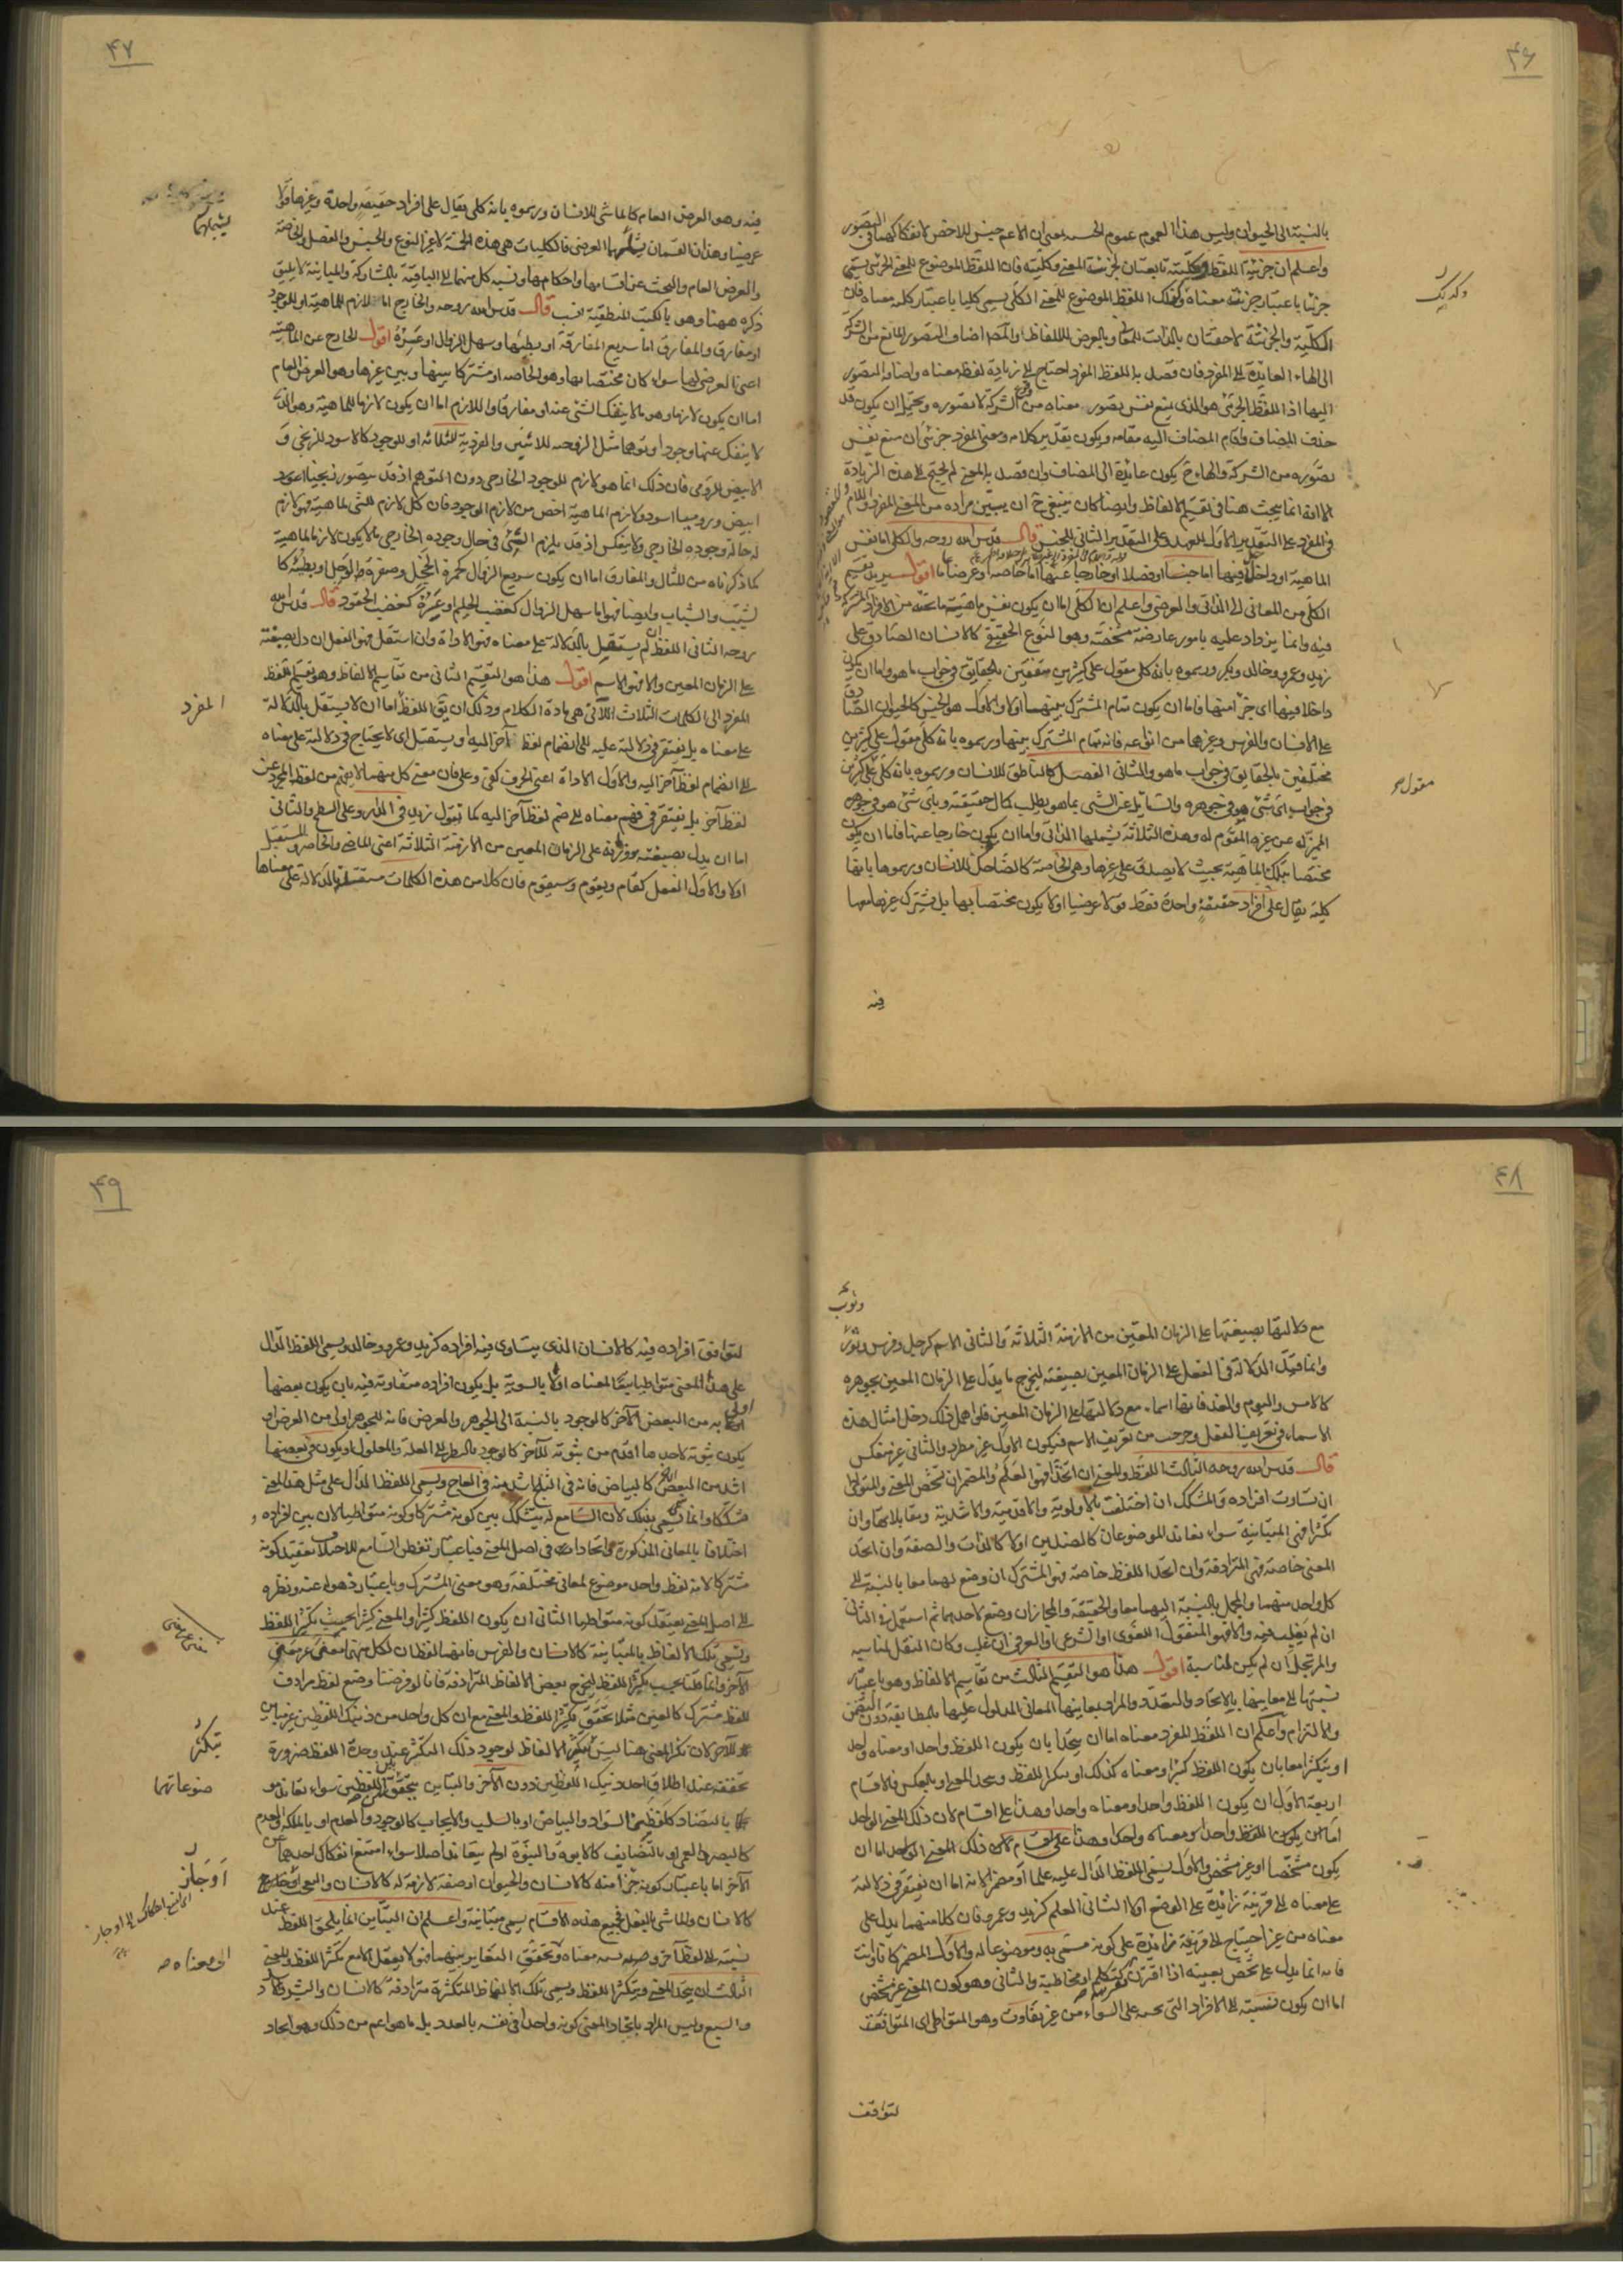 ٤٦
بالنسبة الى الحيوان وليس هذا العموم عموم الجنس بمعنى ان الاعم جنس للاخص لانفكاكهما في التصور
واعلم ان جزئية اللفظ وكليته تابعتان لجزئية المعنى وكليته فان اللفظ الموضوع للمعنى الجزئي يسمى
جزئيا باعتبار جزئية معناه وكذلك اللفظ الموضوع للمعنى الكلي يسمى كليا باعتبار كلية معناه فان
الكلية والجزئية لاحقتان بالذات للمعاني وبالعرض للالفاظ والمص اضاف التصور المانع من الشركة
الى الهاء العايدة الى المفرد فان قصد به اللفظ المفرد احتاج الى زيادة لفظ معناه واضافة التصور
اليها اذ اللفظ الجزئي هو الذي يمنع نفس تصور معناه من وقوع الشركة لا تصوره ويحتمل ان يكون قد
حذف المضاف واقام المضاف اليه مقامه ويكون تقدير كلامه ومعنى المفرد جزئي ان منع نفس
تصوره من الشركة والهاء ح يكون عايدة الى المضاف وان قصد به المعنى لم يحتج الى هذه الزيادة
الا انه انما يبحث هنا في تقسيم الالفاظ وايضا كان ينبغي ح ان يبين مراده من المعنى المفرد واللام
في المفرد على التقدير الاول للعهد وعلى التقدير الثاني للجنس قال قدس الله روحه والكلي اما نفس
الماهية او داخل فيها اما جنسا او فصلا او خارجا عنها اما خاصة او عرضا عاما اقول يريد تقسيم
الكلي من المعاني الى الذاتي والعرضي واعلم ان الكلي اما ان يكون نفس ماهية ما تحته من الافراد المشتركة
فيه وانما يزداد عليه بامور عارضة مشخصة وهو النوع الحقيقي كالانسان الصادق على
زيد وعمرو وخالد وبكر ورسموه بانه كلي مقول على كثيرين متفقين بالحقايق في جواب ما هو واما ان يكون
داخلا فيها اي جزأ منها فاما ان يكون تمام المشترك بينهما اولا والاول هو الجنس كالحيوان الصادق
على الانسان والفرس وغيرهما من انواعه فانه تمام المشترك بينها ورسموه بانه كلي مقول على كثيرين
مختلفين بالحقايق في جواب ما هو والثاني الفصل كالناطق للانسان ورسموه بانه كلي على كثيرين
في جواب اي شئ هو في جوهره والسايل عن الشئ بما هو يطلب كمال حقيقته وباي شئ هو في جوهره
المميز له عن غيره المقوم له وهذه الثلاثة يشملها الذاتي واما ان يكون خارجا عنها فاما ان يكون
مختصا بتلك الماهية بحيث لا يصدق على غيرها وهي الخاصة كالضاحك للانسان ورسموها بانها
كلية يقال على افراد حقيقة واحدة فقط قولا عرضيا او لا يكون مختصا بها بل يشترك غيرها معها
فيه
وكذلك
مقول
٤٧
فيه وهو العرض العام كالماشي للانسان ورسموه بانه كلي يقال على افراد حقيقة واحدة وغيرها قولا
عرضيا وهذان القسمان يشملهما العرضي فالكليات هي هذه الخمسة لا غير النوع والجنس والفصل والخاصة
والعرض العام والبحث عن اقسامها واحكامها ونسبة كل منها الى الباقية بالمشاركة والمباينة لا يليق
ذكره ههنا وهو بالكتب المنطقية انسب قال قدس الله روحه والخارج اما لازم للماهية او للوجود
او مفارق والمفارق اما سريع المفارقة او بطيئها وسهل الزوال او عسره اقول الخارج عن الماهية
اعني العرضي لها سواء كان مختصا بها وهو الخاصة او مشتركا بينها وبين غيرها وهو العرض العام
اما ان يكون لازما وهو ما لا ينفك الشئ عنه او مفارقا واللازم اما ان يكون لازما للماهية وهو الذي
لا ينفك عنها وجودا وتوهما مثل الزوجية للاثنين والفردية للثلاثة او للوجود كالاسود للزنجي و
الابيض للرومي فان ذلك انما هو لازم للوجود الخارجي دون المتوهم اذ قد يتصور زنجيا
ابيض وروميا اسود ولازم الماهية اخص من لازم الوجود فان كل لازم للشئ لماهيته فهو لازم
له حالة وجوده الخارجي ولا ينعكس اذ قد يلزم الشئ في حال وجوده الخارجي ما لا يكون لازما لماهيته
كما ذكرناه من المثال والمفارق اما ان يكون سريع الزوال كحمرة الخجل وصفرة الوجل او بطيئه كا
لشيب والشباب وايضا فهو اما سهل الزوال كغضب الحليم او عسره كغضب الحقود قال قدس الله
روحه الثاني اللفظ ان لم يستقل بالدلالة على معناه فهو الاداة وان استقل فهو الفعل ان دل بصيغته
على الزمان المعين والا فهو الاسم اقول هذا هو التقسيم الثاني من تقاسيم الالفاظ وهو تقسيم اللفظ
المفرد الى الكلمات الثلاث اللاتي هي مادة الكلام وذلك ان يق اللفظ اما ان لا يستقل بالدلالة
على معناه بل يفتقر في دلالته عليه الى انضمام لفظ آخر اليه او يستقل اي لا يحتاج في دلالته على معناه
الى انضمام لفظ آخر اليه والاول الاداة اعني الحرف كفي وعلى فان معنى كل منهما لا يفهم من لفظه المجرد عن
لفظ آخر بل يفتقر في فهم معناه الى ضم لفظ آخر اليه كما تقول زيد في الدار وعلى السطح والثاني
اما ان يدل بصيغته ووزنه على الزمان المعين من الازمنة الثلاثة اعني الماضي والحاضر والمستقبل
اولا والاول الفعل كقام ويقوم وسيقوم فان كلا من هذه الكلمات مستقلة بالدلالة على معناها
يشملهما
المفرد
٤٨
وثوب
مع دلالتها بصيغتها على الزمان المعين من الازمنة الثلاثة والثاني الاسم كرجل وفرس
وانما قيد الدلالة في الفعل على الزمان المعين بصيغته ليخرج ما يدل على الزمان المعين بجوهره
كالامس واليوم والغد فانها اسماء مع دلالتها على الزمان المعين فلو اهمل ذلك دخل امثال هذه
الاسماء في تعريف الفعل وخرجت من تعريف الاسم فيكون الاول غير مطرد والثاني غير منعكس
قال قدس الله روحه الثالث اللفظ والمعنى ان اتحدا فهو العلم والمضمر ان تشخص المعنى والمتواطئ
ان تساوت افراده والمشكك ان اختلفت بالاولوية والاقدمية والاشدية ومقابلاتها وان
تكثرا فهي المتباينة سواء تعاند الموضوعان كالضدين او لا كالذات والصفة وان اتحد
المعنى خاصة فهي المترادفة وان اتحد اللفظ خاصة فهو المشترك ان وضع لهما معا بالنسبة الى
كل واحد منهما والمجمل بالنسبة اليهما معا والحقيقة والمجاز ان وضع لاحدهما ثم استعمل في الثاني
ان لم يغلب فيه والا فهو المنقول اللغوي او الشرعي او العرفي ان غلب وكان النقل لمناسبة
والمرتجل ان لم يكن لمناسبة اقول هذا هو التقسيم الثالث من تقاسيم الالفاظ وهو باعتبار
نسبتها الى معانيها بالاتحاد والتعدد والمراد بمعانيها المعاني المدلول عليها بالمطابقة دون التضمن
والالتزام واعلم ان اللفظ المفرد معناه اما ان يتحدا بان يكون اللفظ واحدا ومعناه واحد
او يتكثرا معا بان يكون اللفظ كثيرا ومعناه كذلك او يتكثر اللفظ ويتحد المعنى او بالعكس فالاقسام
اربعة الاول ان يكون اللفظ واحدا ومعناه واحدا وهذا على اقسام لان ذلك المعنى الواحد
اما ان يكون اللفظ واحدا ومعناه واحدا وهذا على اقسام لان ذلك المعنى الواحد اما ان
يكون مشخصا او غير مشخص والاول يسمى اللفظ الدال عليه علما او مضمرا لانه اما ان يفتقر في دلالته
على معناه الى قرينة زائدة على الوضع او لا الثاني العلم كزيد وعمرو فان كلا منهما يدل على
معناه من غير احتياج الى قرينة زائدة على كونه مسمى به وموضوعا له والاول المضمر كانا وانت
فانه انما يدل على شخص بعينه اذا اقترن كتكلم او مخاطبة والثاني وهو كون المعنى غير مشخص
اما ان يكون نسبته الى الافراد التي تحته على السواء من غير تفاوت وهو المتواطئ اي المتوافق
لتوافق
٤٩
لتوافق افراده فيه كالانسان الذي يتساوى فيه افراده كزيد وعمرو وخالد ويسمى اللفظ الدال
على هذا المعنى متواطيا تبعا لمعناه او لا بالسوية بل يكون افراده متفاوتة فيه بان يكون بعضها
اولى به من البعض الآخر كالوجود بالنسبة الى الجوهر والعرض فانه للجوهر اولى من العرض او
يكون ثبوته لاحدها اقدم من ثبوته للآخر كالوجود بالنظر الى العلة والمعلول او يكون في بعضها
اشد من البعض الآخر كالبياض فانه في الثلج اشد منه في العاج ويسمى اللفظ الدال على مثل هذا المعنى
مشككا وانما سمي بذلك لان السامع له يتشكك بين كونه مشتركا وكونه متواطيا لان بين افراده
اختلافا بالمعاني المذكورة واتحادا في اصل المعنى فباعتبار تفطن السامع للاختلاف يعتقد كونه
مشتركا لانه لفظ واحد موضوع لمعاني مختلفة وهو معنى المشترك وباعتبار ذهوله عنه ونظره
الى اصل المعنى يعتقد كونه متواطيا الثاني ان يكون اللفظ كثيرا والمعنى كثيرا بحيث يتكثر اللفظ
وتسمى تلك الالفاظ بالمتباينة كالانسان والفرس فانهما لفظان لكل منهما معنى غير معنى
الآخر وانما قلنا بحيث يتكثر اللفظ ليخرج بعض الالفاظ المترادفة فانا لو فرضنا وضع لفظ مرادف
للفظ مشترك كالعين مثلا تحقق تكثر اللفظ والمعنى مع ان كل واحد من ذينك اللفظين غير مباين
للآخر لان تكثر المعنى هنا ليس بتكثر الالفاظ لوجود ذلك التكثر عند وحدة اللفظ ضرورة
تحققه عند اطلاق احد ذينك اللفظين دون الآخر والتباين يتحقق بين اللفظين سواء تعاند مو
بالتضاد كلفظي السواد والبياض او بالسلب والايجاب كالوجود والعدم او بالملكة والعدم
كالبصر والعمى او بالتضايف كالابوة والبنوة او لم يتعاندا اصلا سواء امتنع انفكاك احدهما عن
الآخر اما باعتبار كونه جزأ منه كالانسان والحيوان او صفة لازمة له كالانسان
كالانسان والماشي بالفعل فجميع هذه الاقسام يسمى متباينة واعلم ان التباين انما يلحق اللفظ عند
نسبته الى لفظ آخر ومعناه وتحقق التغاير بينهما فهو لا يعقل الا مع تكثر اللفظ والمعنى
الثالث ان يتحد المعنى ويتكثر اللفظ ويسمى تلك الالفاظ المتكثرة مترادفة كالانسان والبشر
والسبع وليس المراد باتحاد المعنى كونه واحدا في نفسه بالعدد بل ما هو اعم من ذلك وهو اتحاد
يتكثر
ضوعاتهما
او جاز
الى معناه